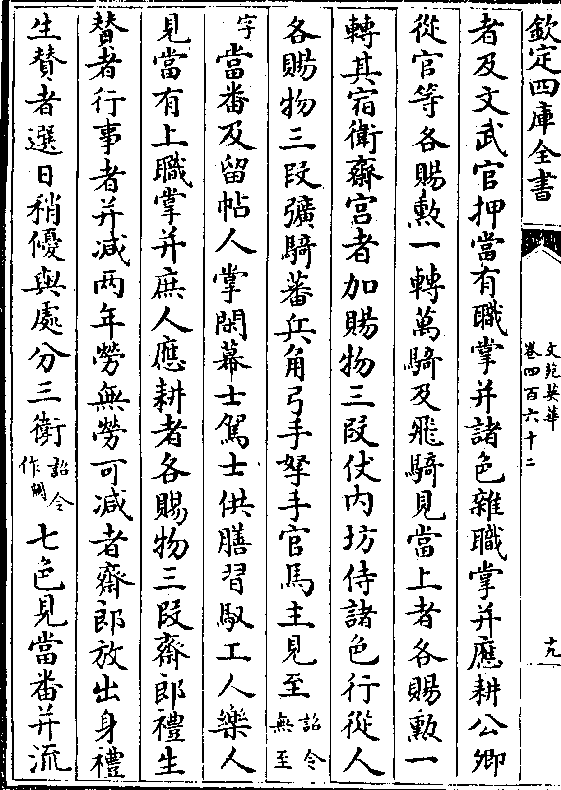 欽定四庫全書
文苑英華
卷四百六十二
十九
者及文武官押當有職掌并諸色雜職掌并應耕公卿
從官等各賜勲一轉萬騎及飛騎見當上者各賜勲一
轉其宿衛齋宮者加賜物三段仗内坊侍諸色行從人
各賜物三段彍騎蕃兵角弓手弩手官馬主見至詔令無至
字當番及留帖人掌閑幕士駕士供膳習馭工人樂人
見當有上職掌并庶人應耕者各賜物三段齋郎禮生
替者行事者并減两年勞無勞可減者齋郎放出身禮
生賛者選日稍優與處分三衛詔令作關七色見當番并流